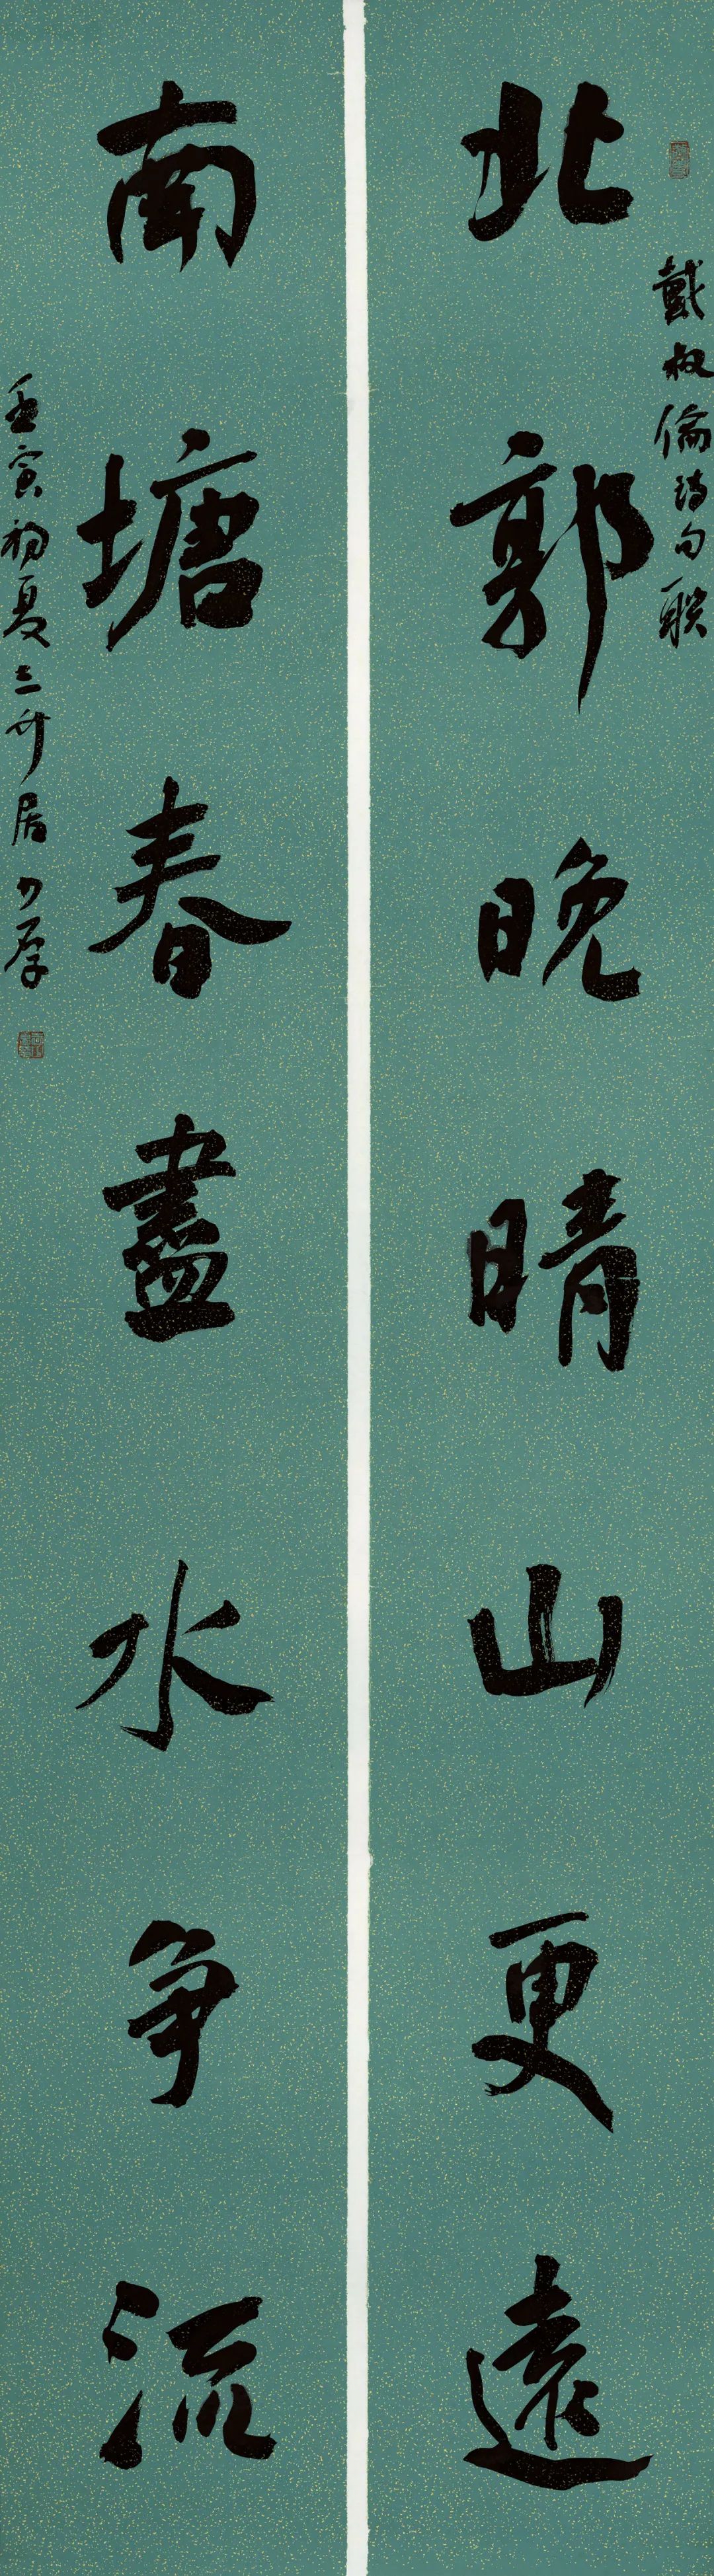 戴叔倫詩句聯
北郭晚晴山更遠
南塘春盡水争流
壬寅初夏三升居